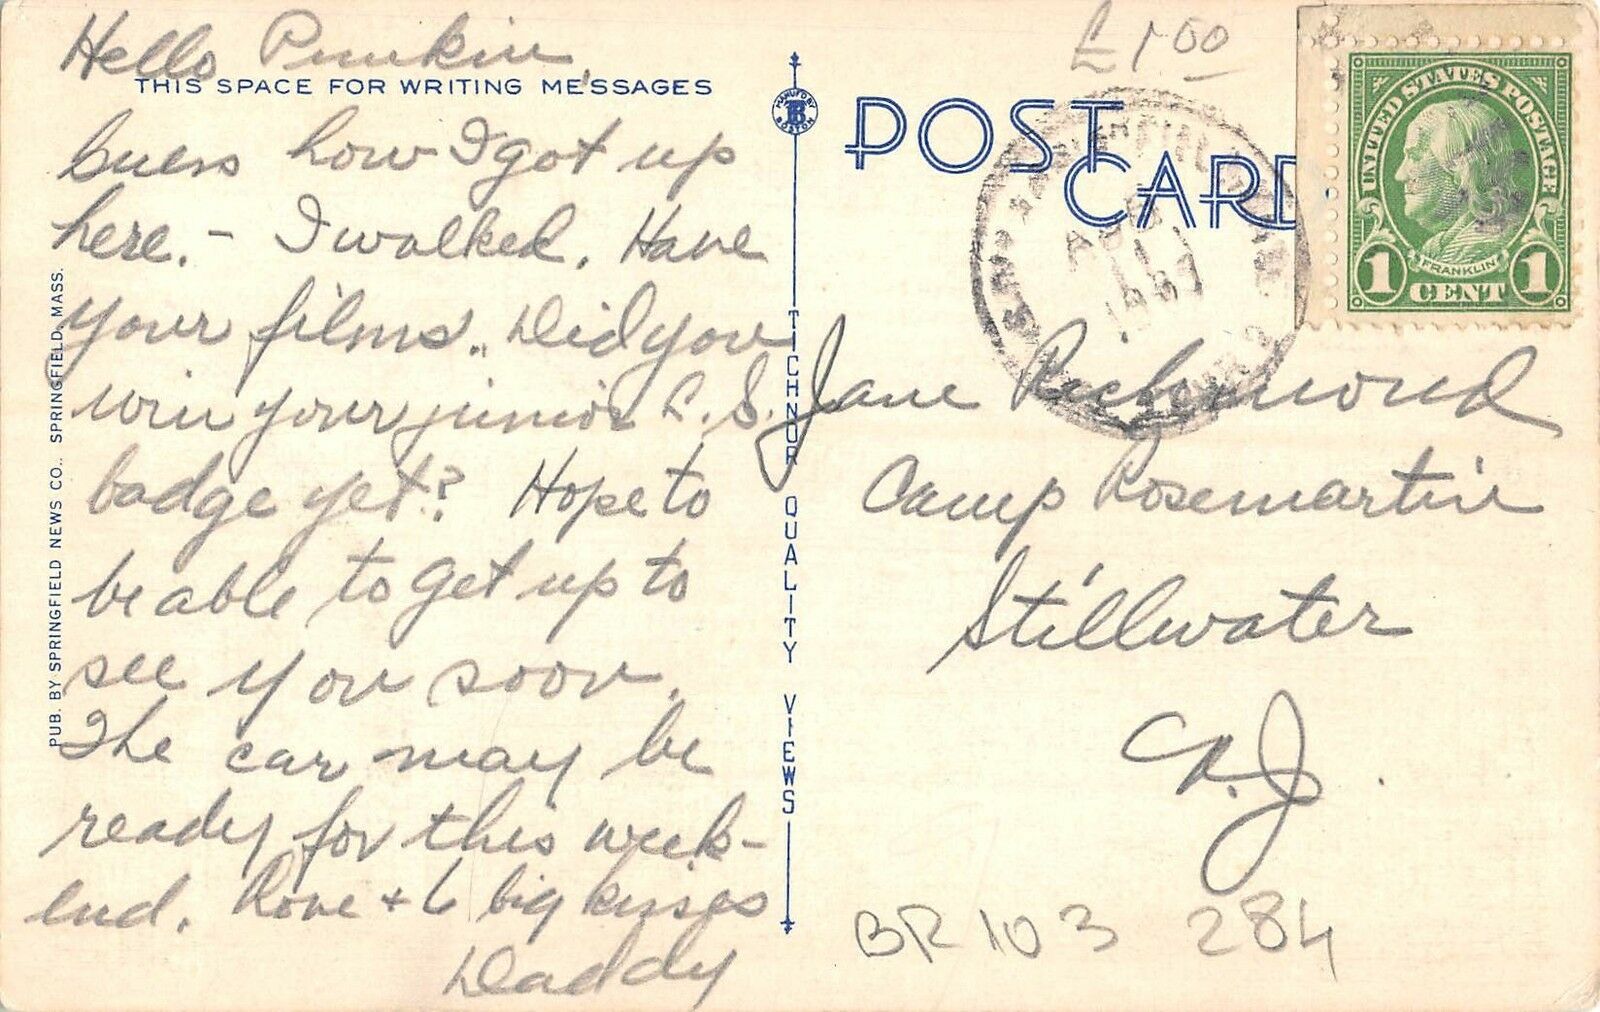 Hello Punkin,
THIS SPACE FOR WRITING MESSAGES
Guess how I got up
here. - I walked. Have
your films. Did you
win your junior L. S.
badge yet? Hope to
be able to get up to
see you soon.
The car may be
ready for this week-
end. Love + 6 big kisses
Daddy
PUB. BY SPRINGFIELD NEWS CO., SPRINGFIELD, MASS.
MANUF'D BY
TB
BOSTON
TICHNOR QUALITY VIEWS
£1 00
POST
CARD
AUG
11
UNITED STATES POSTAGE
FRANKLIN
1 CENT 1
Jane Richmond
Camp Rosemartin
Stillwater
N.J.
BR 103 284